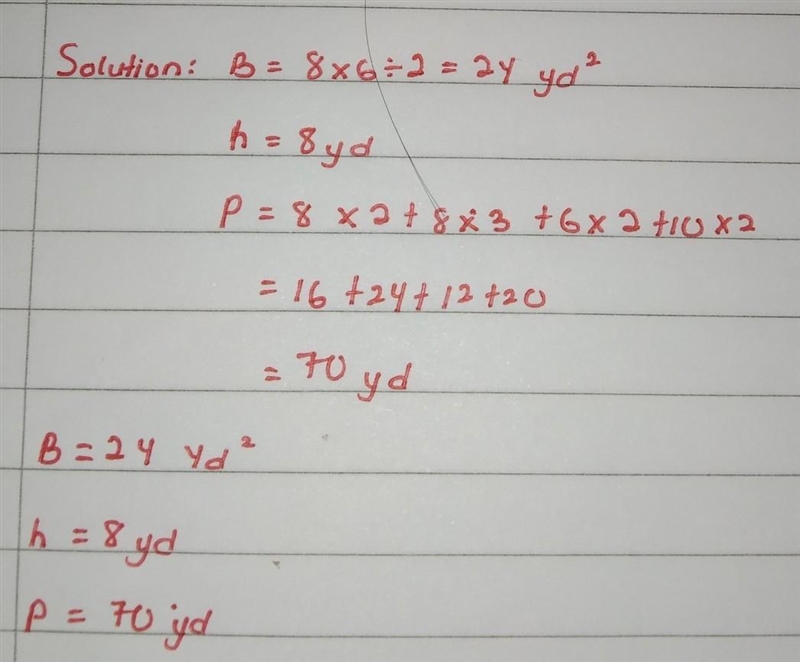 Solution: B = 8 x 6 ÷ 2 = 24 yd²
h = 8 yd
P = 8 x 2 + 8 x 3 + 6 x 2 + 10 x 2
= 16 + 24 + 12 + 20
= 70 yd
B = 24 yd²
h = 8 yd
P = 70 yd